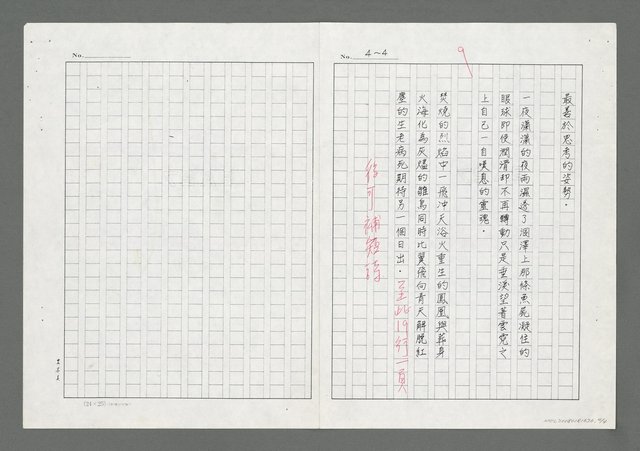 No. 4~4
9
最善於思考的姿勢。
一夜瀟瀟的夜雨濕透了涸澤上那條魚屍凝住的
眼球即使潤滑卻不再轉動只是空漠望著雲霓之
上自己一自嘆息的靈魂。
焚燒的烈焰中一飛冲天浴火重生的鳳凰與葬身
火海化為灰燼的雛鳥同時比翼飛向青天解脫紅
塵的生老病死期待另一個日出。
至此19行一頁
後可補短詩
No.
(24×25)